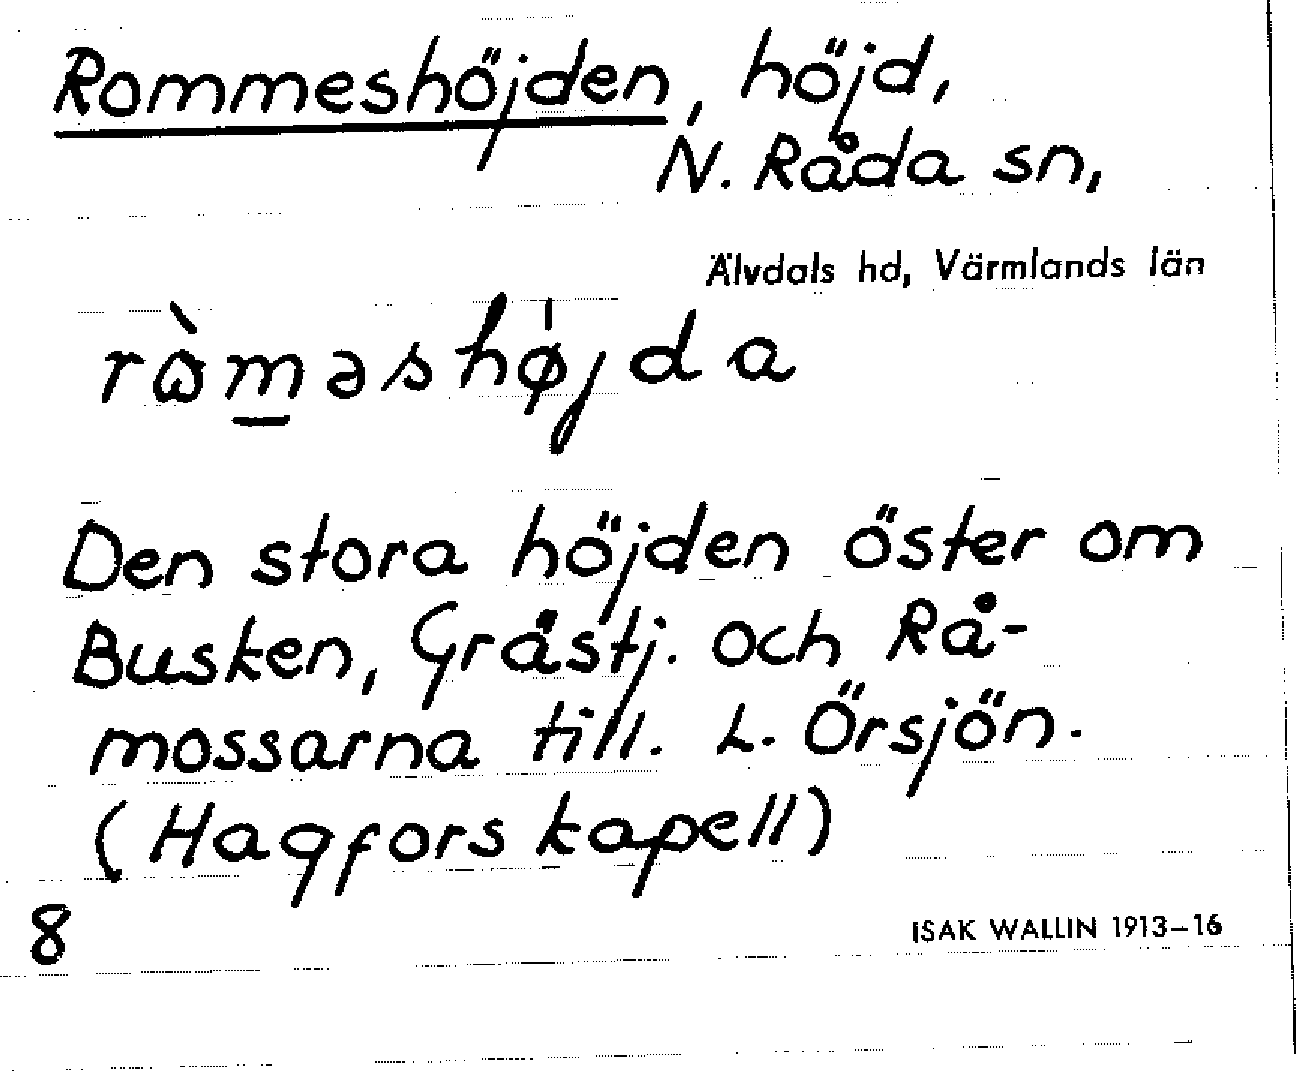 Rommeshöjden, höjd,
N. Råda sn,
Älvdals hd, Värmlands län
rɷ̀m̲əshø̍jda
Den stora höjden öster om
Busken, Gråstj. och Rå-
mossarna till. L. Örsjön.
(Hagfors kapell)
8
ISAK WALLIN 1913–16